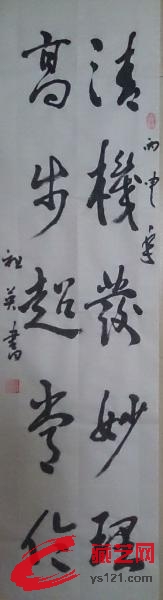 清機發妙理
丙申
高步超常倫
祖英書
藏艺网
ys121.com